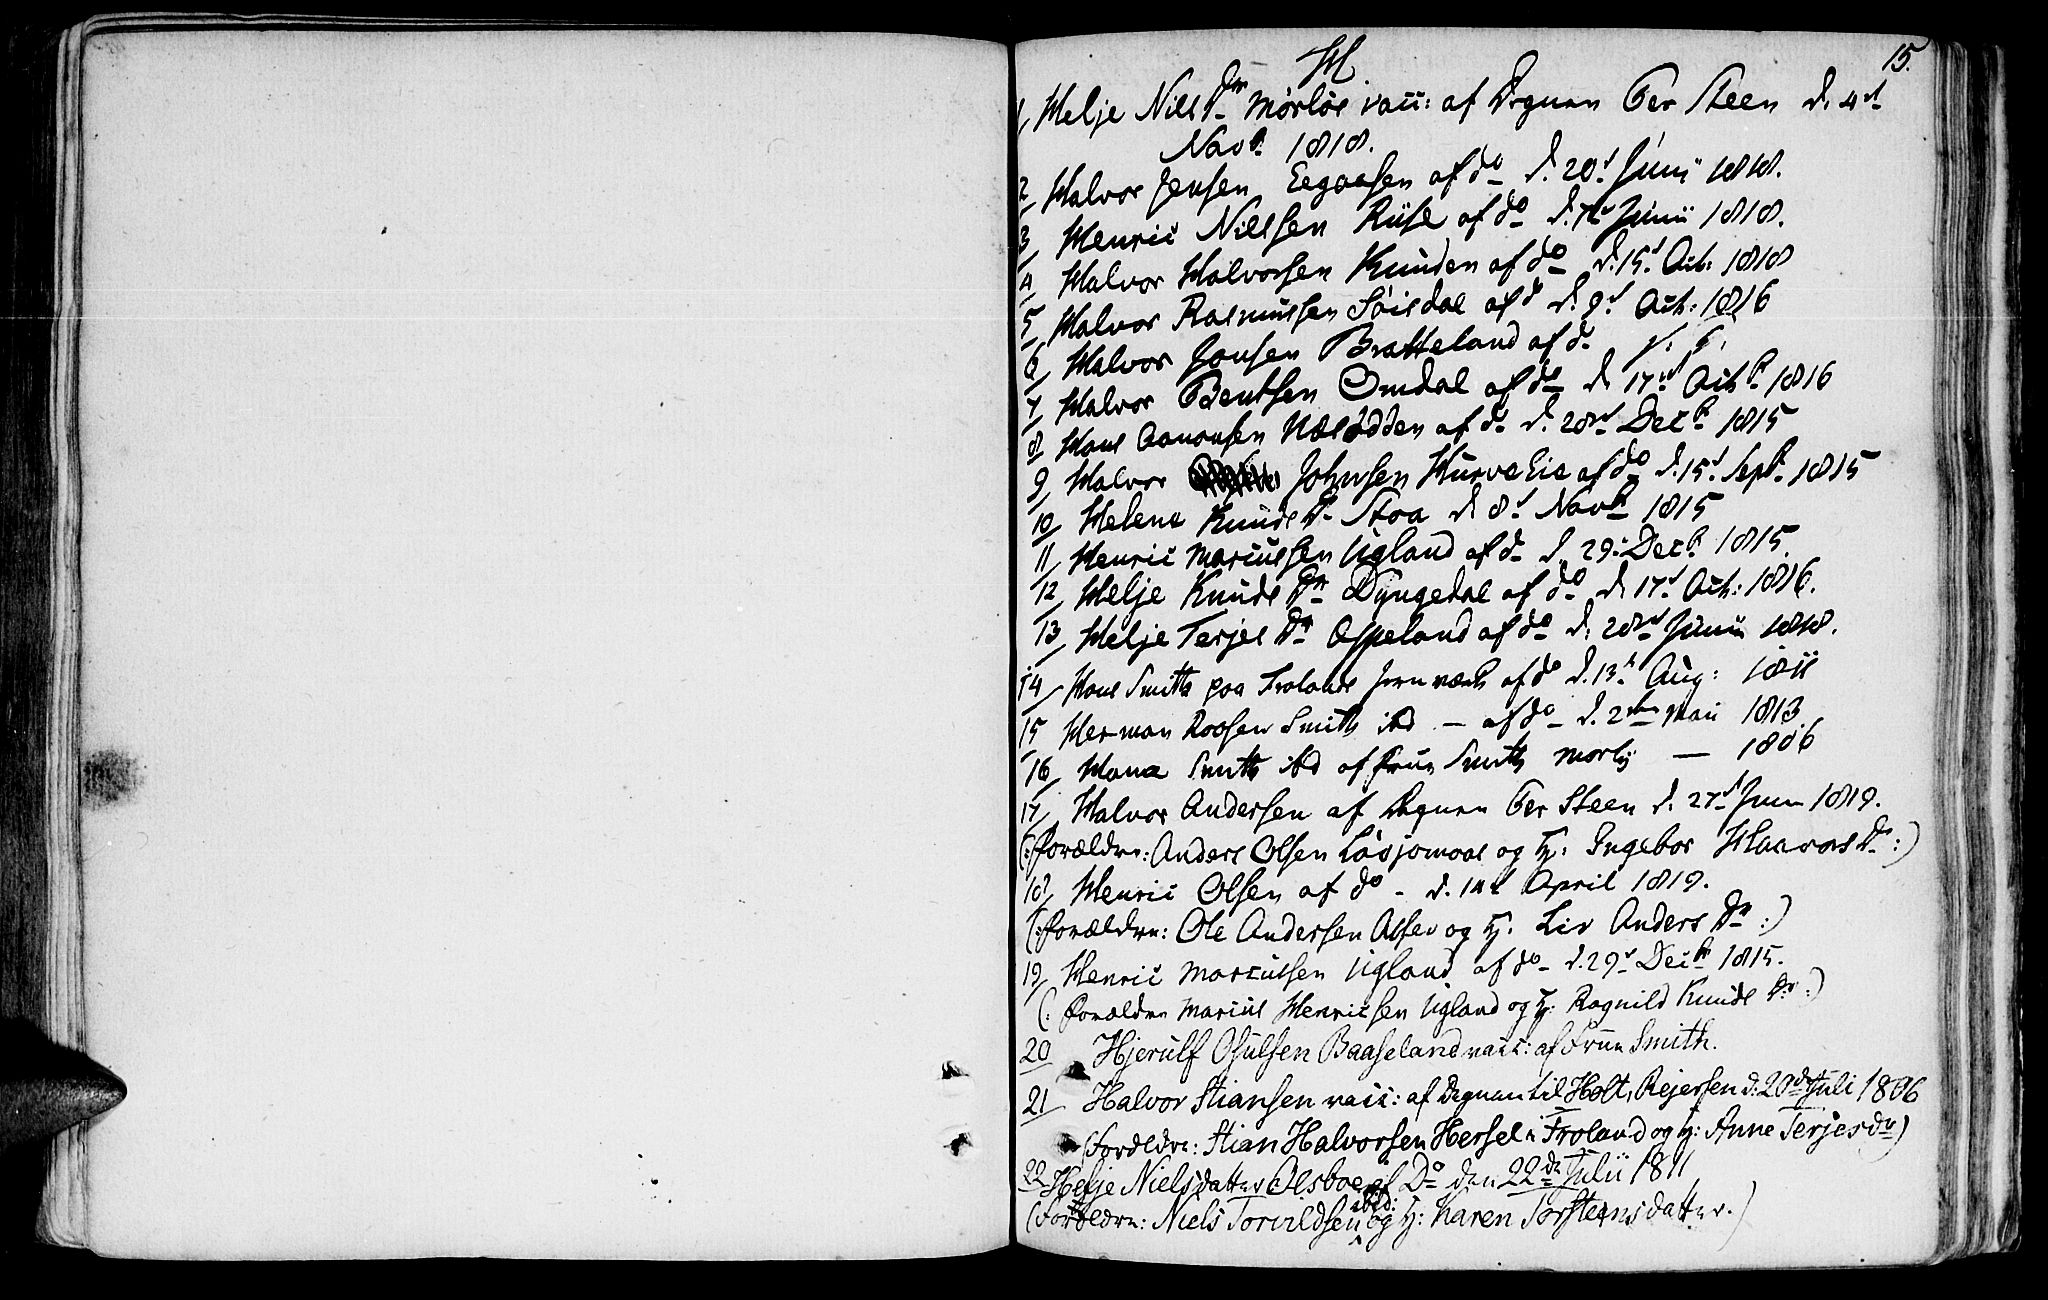 15.
H.
1/ Helje Niels Dr Mørløs vacc: af Degnen Per Steen d. 4d
Novb. 1818.
2/ Halvor Jensen Eegaasen af do d. 20d Junii 1818.
3/ Henric Nielsen Riise af do d. 7d Junii 1818.
4/ Halvor Halvorsen Knuden af do d. 15d Oct: 1818
5/ Halvor Rasmussen Søisdal af do d. 9d Oct: 1816
6/ Halvor Jonsen Bratteland af do
7/ Halvor Bentsen Omdal af do d. 17d Octbr 1816
8/ Hans Aanonsen Næsødden af do d. 28d Decbr 1815
9/ Halvor Johnsen Hurvelie af do d. 15d Sepbr 1815
10/ Helene Knuds Dr Stoa d. 8d Novbr 1815
11/ Henric Marcussen Ugland af do d. 29. Decbr 1815.
12/ Helje Knuds Dr Dyngedal af do d. 17d Oct: 1816.
13/ Helje Terjes Dr Espeland af do d. 28d Junii 1818.
14/ Hans Smith paa Frolands Jernværk af do d. 13d Aug: 1811
15 Herman Roosen Smith ibd — af do d. 2den Maii 1813
16/ Hans Smith ibd af Frue Smith Morby — 1806
17/ Halvor Andersen af Degnen Per Steen d. 27d Junii 1819.
(:Forældre: Anders Olsen Løvjomaas og H: Ingebor Haavors Dr:)
18/ Henric Olsen af do - d. 14d April 1819.
(:Forældre: Ole Andersen Assev og H. Liv Anders Dr:)
19/ Henric Marcussen Ugland af do d. 29d Decbr 1815.
(: Forældre Marcus Henricsen Ugland og H: Ragnild Knuds Dr:)
20 Hjerulf Osulsen Baaseland vacc: af Frue Smith.
21/ Halvor Stiansen vacc: af Degnen til Holt, Rejersen d: 20de Juli 1806
(Forældre: Stian Halvorsen Hersel i Froland og H: Anne Terjesdr)
22 Helje Nielsdatter Olsboe af Do den 22de Julii 1811
(Forældre: Niels Torvildsen ibid: og H: Karen Torstensdatter.)